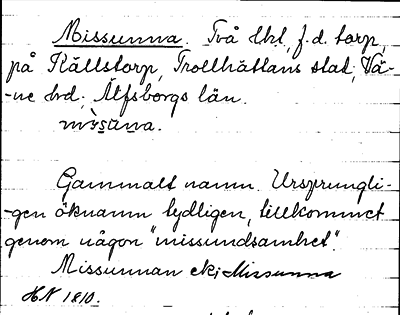 Missunna. Två lhl, f.d. torp,
på Källstorp, Trollhättans stad, Vä-
-ne hrd, Älfsborgs län.
mìsuna.
Gammalt namn. Ursprungli-
-gen öknamn tydligen, tillkommet
genom någon "missundsamhet".
Missunnan ekj Missunna
HN 1810.